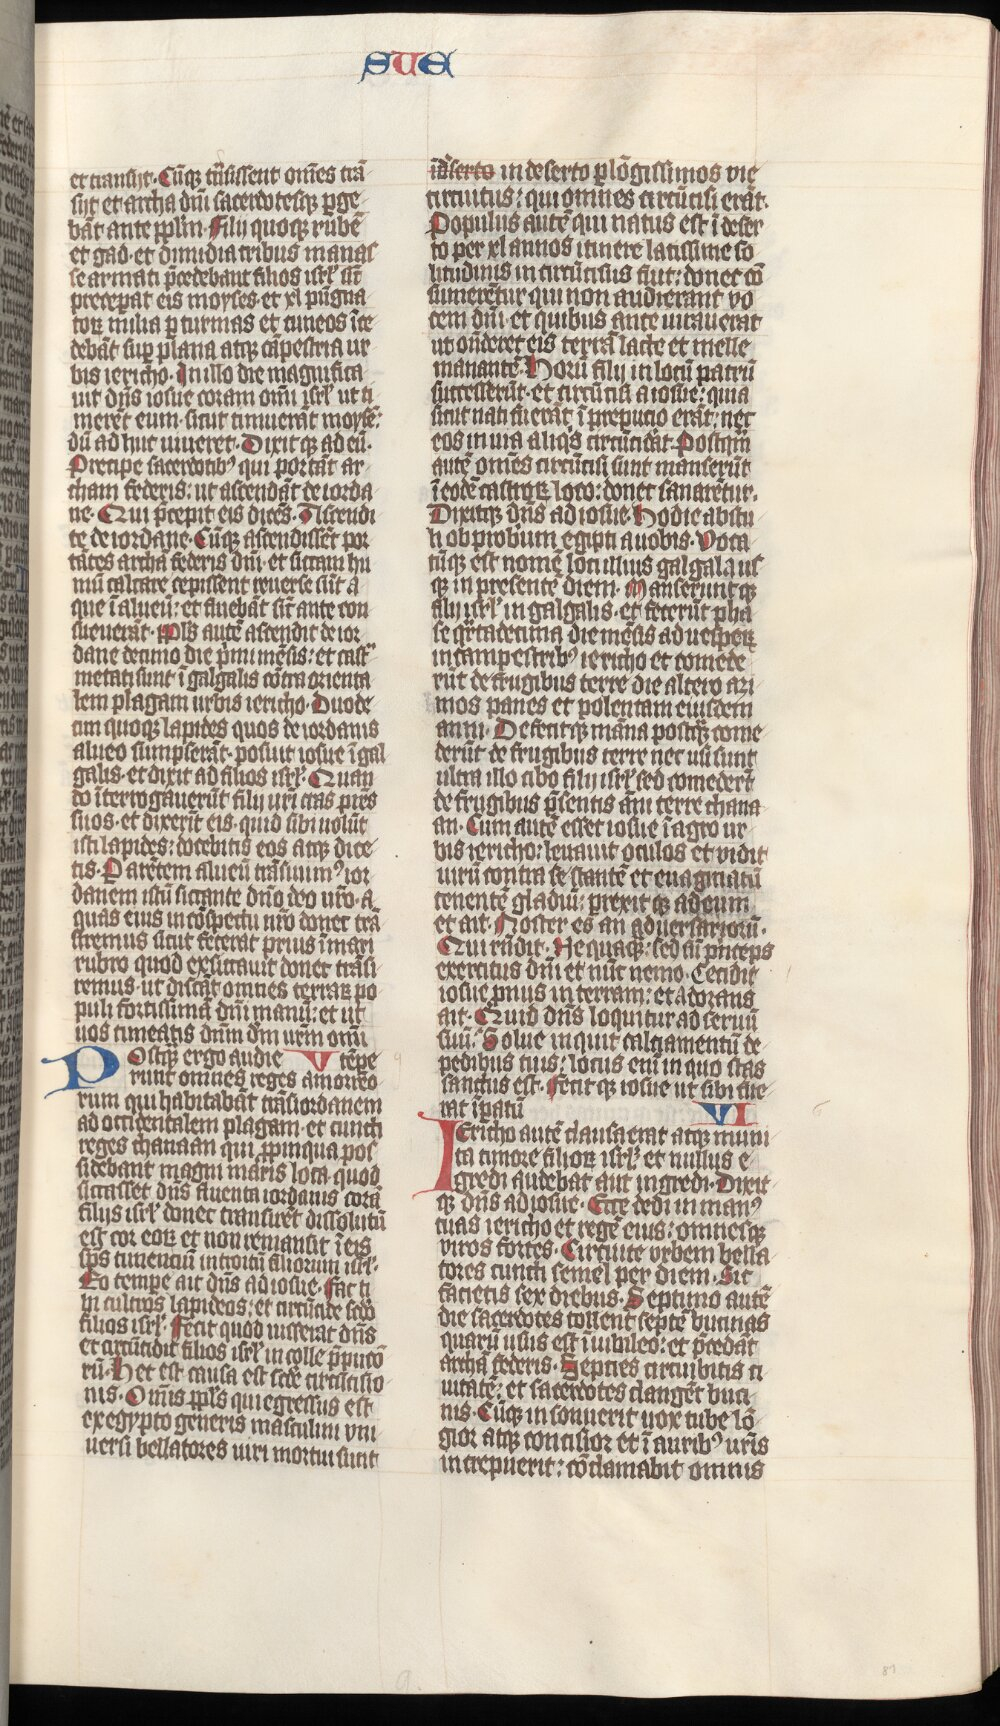 SUE
et transijt. Cūq; trāsissent om̄es trā
sijt et archa dn̄i sacerdotesq; ꝑge
bāt ante ppl̄m. Filij quoq; rubē
et gad. et dimidia tribus manas
se armati p̄cedebant filios isrl̄ sic̄
preceperat eis moyses. et xl pugna
toꝝ milia ꝑ turmas et cuneos īce
debāt suꝑ plana atq; cāpestria ur
bis iericho. In illo die magnifica
uit dn̄s iosue coram omī isrl̄ ut ti
merēt eum. sicut timuerāt moysē:
dū ad huc viueret. Dixitq; ad eū.
Precipe sacerdotib9 qui portāt ar
cham federis: ut ascendāt de iorda
ne. Qui p̄cepit eis dicēs. Ascendi
te de iordane. Cūq; ascendissēt por
tātes archā federis dn̄i. et siccam hu
mū calcare cepissent reuerse sūt a
que ī alueū: et fluebāt sic̄ ante con
sueuerāt. Ppl̄s autē ascendit de ior
dane decimo die p̄mi mēsis: et cast
metati sunt ī galgalis cōtra orienta
lem plagam urbis iericho. Duode
cim quoq; lapides quos de iordanis
alueo sumpserāt. posuit iosue ī gal
galis. et dixit ad filios isrl̄. Quan
do īterrogauerūt filij vr̄i cras pr̄es
suos. et dixerīt eis. quid sibi uolūt
isti lapides: docebitis eos atq; dice
tis. Parētem alueū trāsiuim9 ior
danem istū siccante dn̄o deo vr̄o. a
quas eius in cōspectu vr̄o donec trā
siremus sicut fecerat prius ī mari
rubro quod exsiccauit donec trāsi
remus. ut discāt omnes terraꝝ po
puli fortissimā dn̄i manū: et ut
uos timeatis dn̄m dm̄ vr̄m omī
Postq; ergo audie V tēpe
runt omnes reges amorreo
rum qui habitabāt trāsiordanem
ad occidentalem plagam. et cuncti
reges chanaān qui ꝓpinqua pos
sidebant magni maris loca. quod
siccasset dn̄s fluenta iordanis corā
filijs isrl̄ donec transirēt dissolutū
est cor eoꝝ et non remansit ī eis
sp̄s timenciū introitū filiorum isrl̄.
Eo tempe ait dn̄s ad iosue. Fac ti
bi cultros lapideos: et circūcide sc̄do
filios isrl̄. Fecit quod iusserat dn̄s
et circūcidit filios isrl̄ in colle p̄puciō
rū. Hec est causa est sc̄de circūcisio
nis. Om̄is ppl̄s qui egressus est
ex egypto generis masculini vni
uersi bellatores uiri mortui sunt
īdeserto in deserto ꝑlōgissimos vie
circuitus: qui omnes circūcisi erāt.
Populus autē qui natus est ī deser
to per xl annos itinere latissime so
litudinis incircūcisus fuit: donec cō
sumerētur qui non audierant vo
cem dn̄i et quibus ante iurauerat
ut ōnderet eis terrā lacte et melle
manantē. Horū filij in locū patrū
successerūt. et circūcisi a iosue: quia
sicut nati fuerāt ī prepucio erāt. nec
eos in uia aliqs circūcidāt. Postqm̄
autē om̄es circūcisi sunt manserūt
ī eodē castroꝝ loco: donec sanarētur.
Dixitq; dn̄s ad iosue. Hodie abstu
li obprobium egipti a uobis. Voca
tūq; est nomē loci illius galgala us
q; in presentē diem. Manserunt q;
filij isrl̄ in galgalis. et fecerūt pha
se qr̄tadecima die mēsis ad uesꝑeꝝ
in campestrib9 iericho et comede
rūt de frugibus terre die altero azi
mos panes et polentam eiusdem
anni. Defecitq; māna postq; come
derūt de frugibus terre nec usi sunt
ultra illo cibo filij isrl̄ sed comederīt
de frugibus p̄sentis āni terre chana
an. Cum autē esset iosue ī agro ur
bis iericho: leuauit oculos et vidit
virū contra se stantē et euaginatū
tenentē gladiū: prexit q; ad eum
et ait. Noster es an aduersariorū.
Qui rn̄dit. Nequaq;. sed sū p̄nceps
exercitus dn̄i et nūc uenio. Cecidit
iosue pnus in terram: et adorans
ait. Quid dn̄s loquitur ad seruū
suū. Solue inquit calciamentū de
pedibus tuis: locus enī in quo stas
sanctus est. Fecit q; iosue ut sibi fue
rat īpatū VI
Iericho autē clausa erat atq; muni
ta timore filioꝝ isrl̄ et nullus e
gredi audebat aut ingredi. Dixit
q; dn̄s ad iosue. Ecce dedi in man9
tuas iericho et regē eius: omnesq;
viros fortes. Circuite vrbem bella
tores cuncti semel per diem. Sic
facietis sex diebus. Septimo autē
die sacerdotes tollent septē bucinas
quarū usus est ī iubileo: et p̄cedāt
archā federis. Septies circuibitis ci
uitatē: et sacerdotes clangēt buci
nis. Cūq; insonuerit uox tube lō
gior atq; concisior et ī aurib9 vr̄is
increpuerit: cōclamabit omnis
81